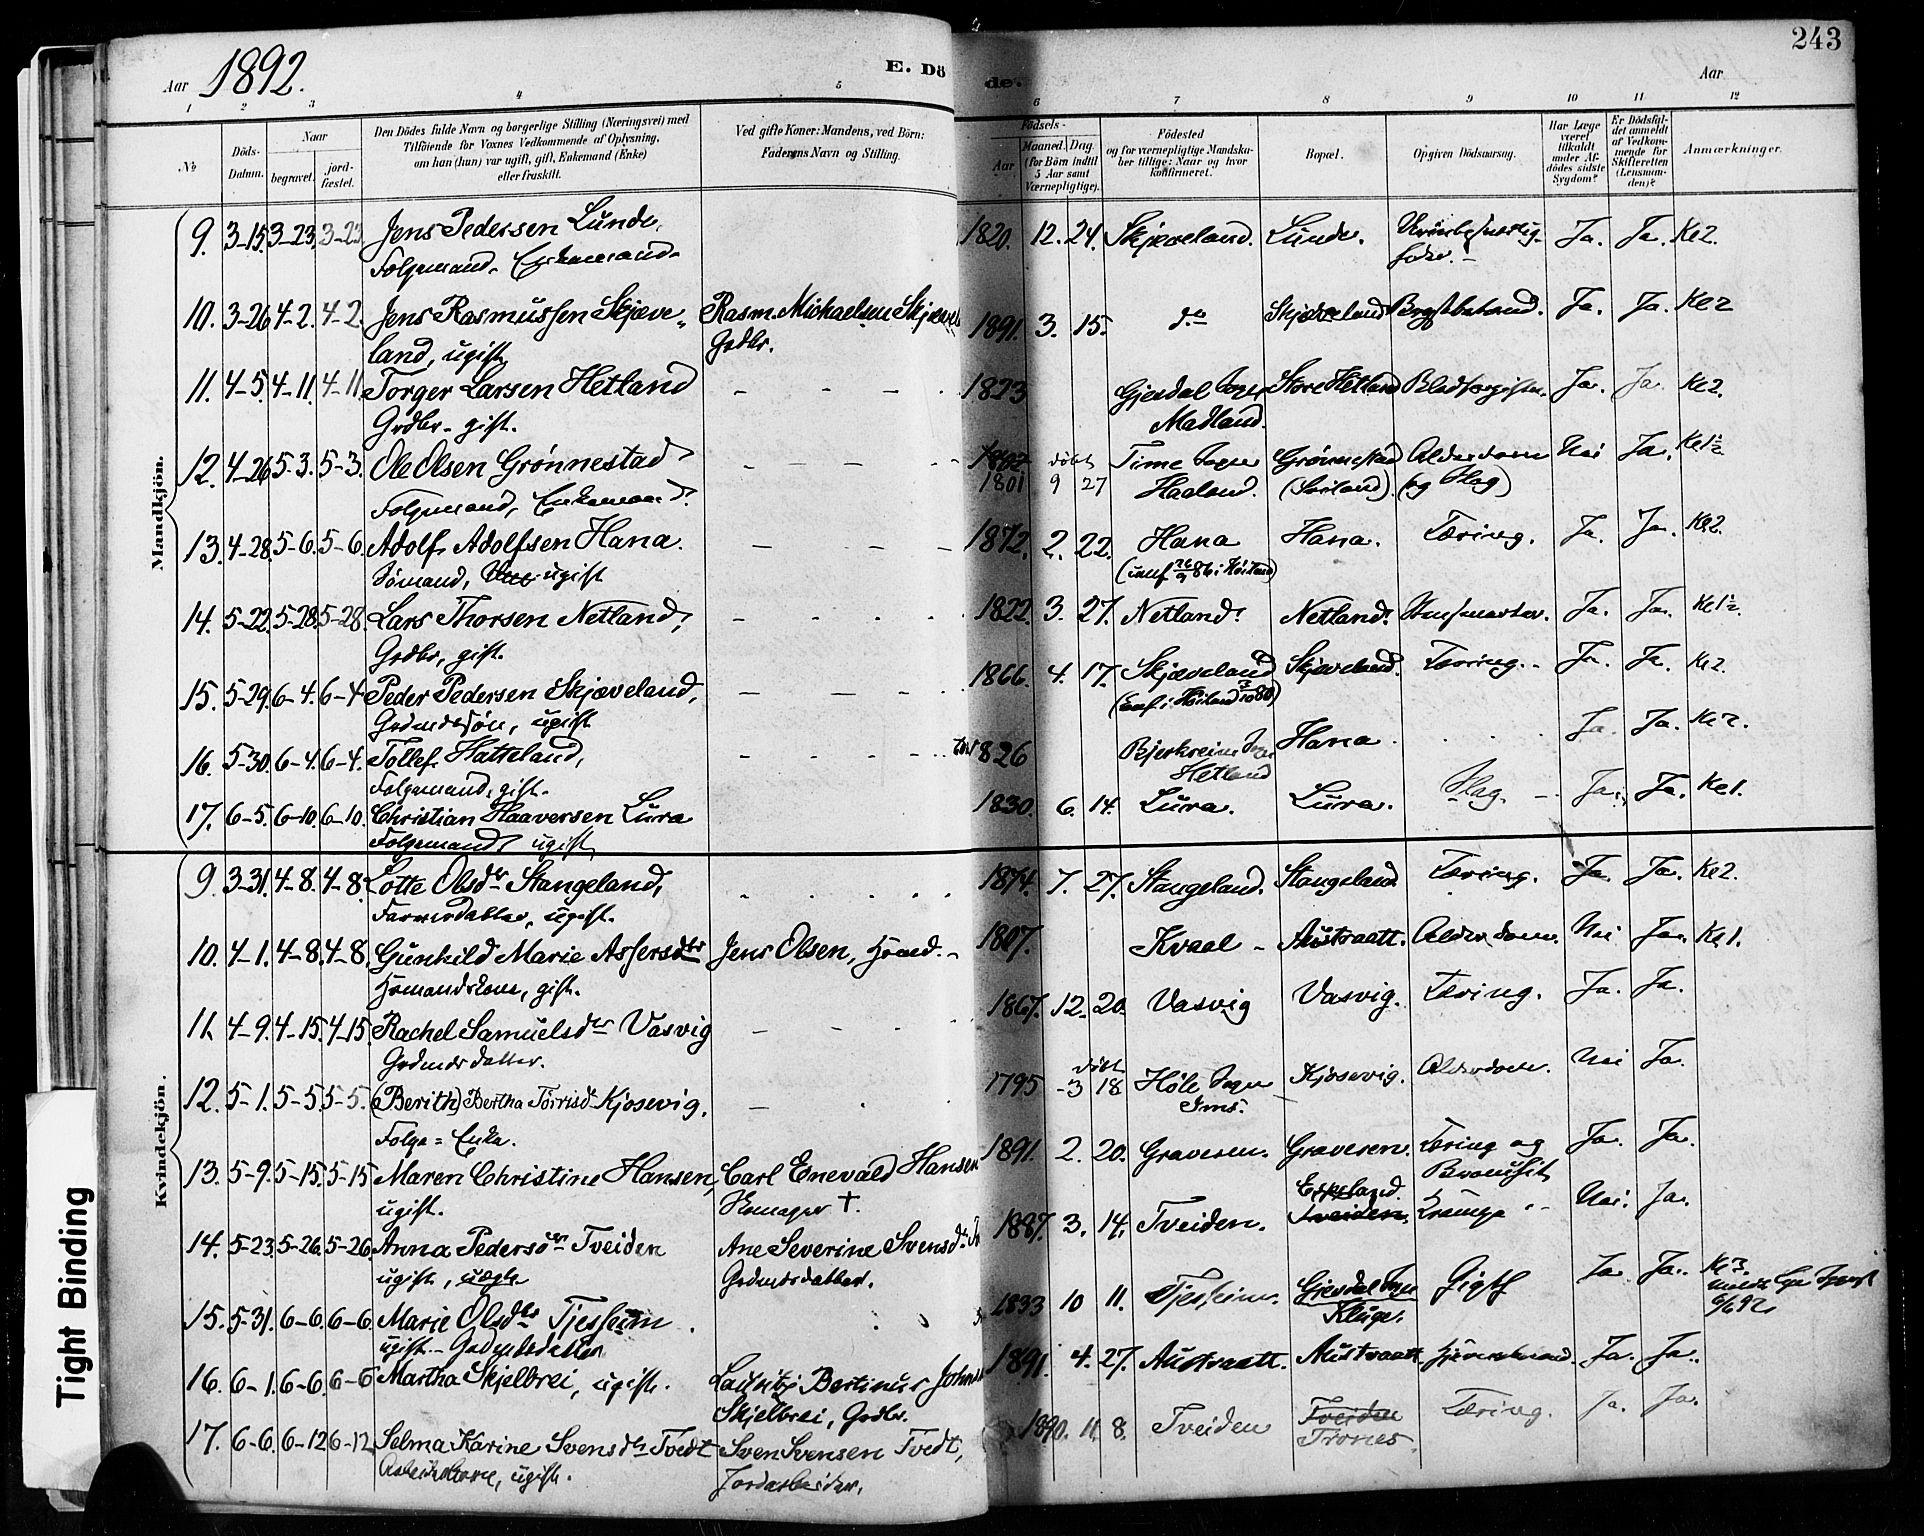 243
Aar 1892.
E. Dö de.
Aar
1 2 3 4 5 6 7 8 9 10 11 12
No
Döds-Datum.
Naar begravet. jord-fæstet.
Den Dödes fulde Navn og borgerlige Stilling (Næringsvei) med
Tilföiende for Voxnes Vedkommende af Oplysning,
om han (hun) var ugift, gift, Enkemand (Enke)
eller fraskilt.
Ved gifte Koner: Mandens, ved Börn:
Faderens Navn og Stilling.
Födsels-
Aar Maaned. Dag.
(for Börn indtil
5 Aar samt
Værnepligtige).
Födested
og for værnepligtige Mandskaber tillige: Naar og hvor
konfirmeret.
Bopæl.
Opgiven Dödsaarsag.
Har Læge
været
tilkaldt
under Afdödes sidste
Sygdom?
Er Dödsfaldet anmeldt
af Vedkommende for
Skifteretten
(Lensmanden)?
Anmærkninger.
Mandkjön.
9. 3-15. 3-23. 3-23. Jens Pedersen Lunde, 1820. 12. 24. Skjæveland. Lunde. Ja. Ja. Kl 2.
Folgemand. Enkemand.
10. 3-26. 4-2. 4-2. Jens Rasmussen Skjæve- Rasm. Michaelsen 1891. 3. 15. do Skjæveland Ja. Ja. Kl 2
land, ugift Grdbr.
11. 4-5. 4-11. 4-11. Torger Larsen Hetland 1823 Gjesdal Sogn Store Hetland Blodforgiftn. Ja. Ja. Kl 2.
Grdbr. gift. Madland.
12. 4-26. 5-3. 5-3. Ole Olsen Grønnestad døbt Time Sogn Grønnestad Alderdom Nei Ja. Kl 1½
Folgemand, Enkemand. 1801 9 27 Haaland. (og Slag)
13. 4-28. 5-6. 5-6. Adolf Adolfsen Hana. 1872. 2. 22. Hana Hana. Tæring. Ja. Ja. Kl 2.
Sømand, ugift
14. 5-22. 5-28. 5-28. Lars Thorsen Netland, 1822. 3. 27. Netland. Netland. Ja. Ja. Kl 1½.
Grdbr, gift.
15. 5-29. 6-4. 6-4 Peder Pedersen Skjæveland, 1866. 4. 17. Skjæveland Skjæveland. Tæring. Ja. Ja. Kl 2.
Grdmdssøn, ugift
16. 5-30. 6-4. 6-4. Tollef Hatteland, 1826 Bjerkreim Sogn Hana Ja. Ja. Kl 2.
Folgemand, gift. Hetland
17. 6-5. 6-10. 6-10. Christian Haaversen Lura 1830. 6. 14. Lura. Lura. Slag. Ja. Ja. Kl 1.
Folgemand ugift
Kvindekjön.
9. 3-31. 4-8. 4-8. Lotte Olsdtr Stangeland, 1874. 7. 27. Stangeland. Stangeland Tæring. Ja. Ja. Kl 2.
ugift.
10. 4-1. 4-8. 4-8. Gunhild Marie Assersdtr Jens Olsen, Hsmd. 1807. Kvaal Austraatt. Alderdom. Nei Ja. Kl 1.
Hsmandskone, gift.
11. 4-9. 4-15. 4-15. Rachel Samuelsdtr Vasvig 1867. 12. 20. Vasvig Vasvig. Tæring. Ja. Ja.
Grdmdsdatter.
12. 5-1. 5-5. 5-5. (Berith) Bertha Torrisd. Kjosevig. 1795 døbt 3 18 Høle Sogn Kjosevig. Alderdom. Nei Ja.
Folge=Enke. Ims.
13. 5-9. 5-15. 5-15 Maren Christine Hansen, Carl Enevald Hansen 1891. 2. 20. Graveren. Graveren. Tæring og Ja. Ja.
ugift. Skomager †. Bronchit
14. 5-23. 5-26. 5-26. Anna Pedersen Tveiden Ane Severine Svensdtr 1887. 3. 14. Tveiden. Tveiden. Krampe Nei. Ja.
ugift, uægte Grdmdsdatter.
15. 5-31. 6-6. 6-6. Marie Olsdtr Tjessem 1833 10 11. Tjessem. Gjesdal Sogn Gigt Ja Ja. Kl 3.
ugift. Grdmdsdatter Kluge.
16. 6-1. 6-6. 6-6 Martha Skjelbrei, ugift. Lauritz Bertinus 1891. 4. 27. Austraatt. Austraatt. Ja. Ja.
Skjelbrei, Grdbr.
17. 6-6. 6-12 6-12 Selma Karine Svensdtr Tvedt Sven Svensen Tvedt, 1890. 11. 8. Tveiden Tveiden Tæring. Ja. Ja.
ugift. Jordarbeider. Trones.
Tight Binding